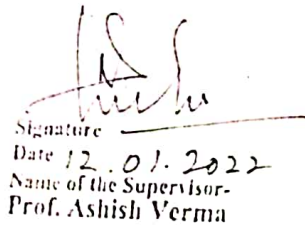 Signature
Date 12.01.2022
Name of the Supervisor-
Prof. Ashish Verma